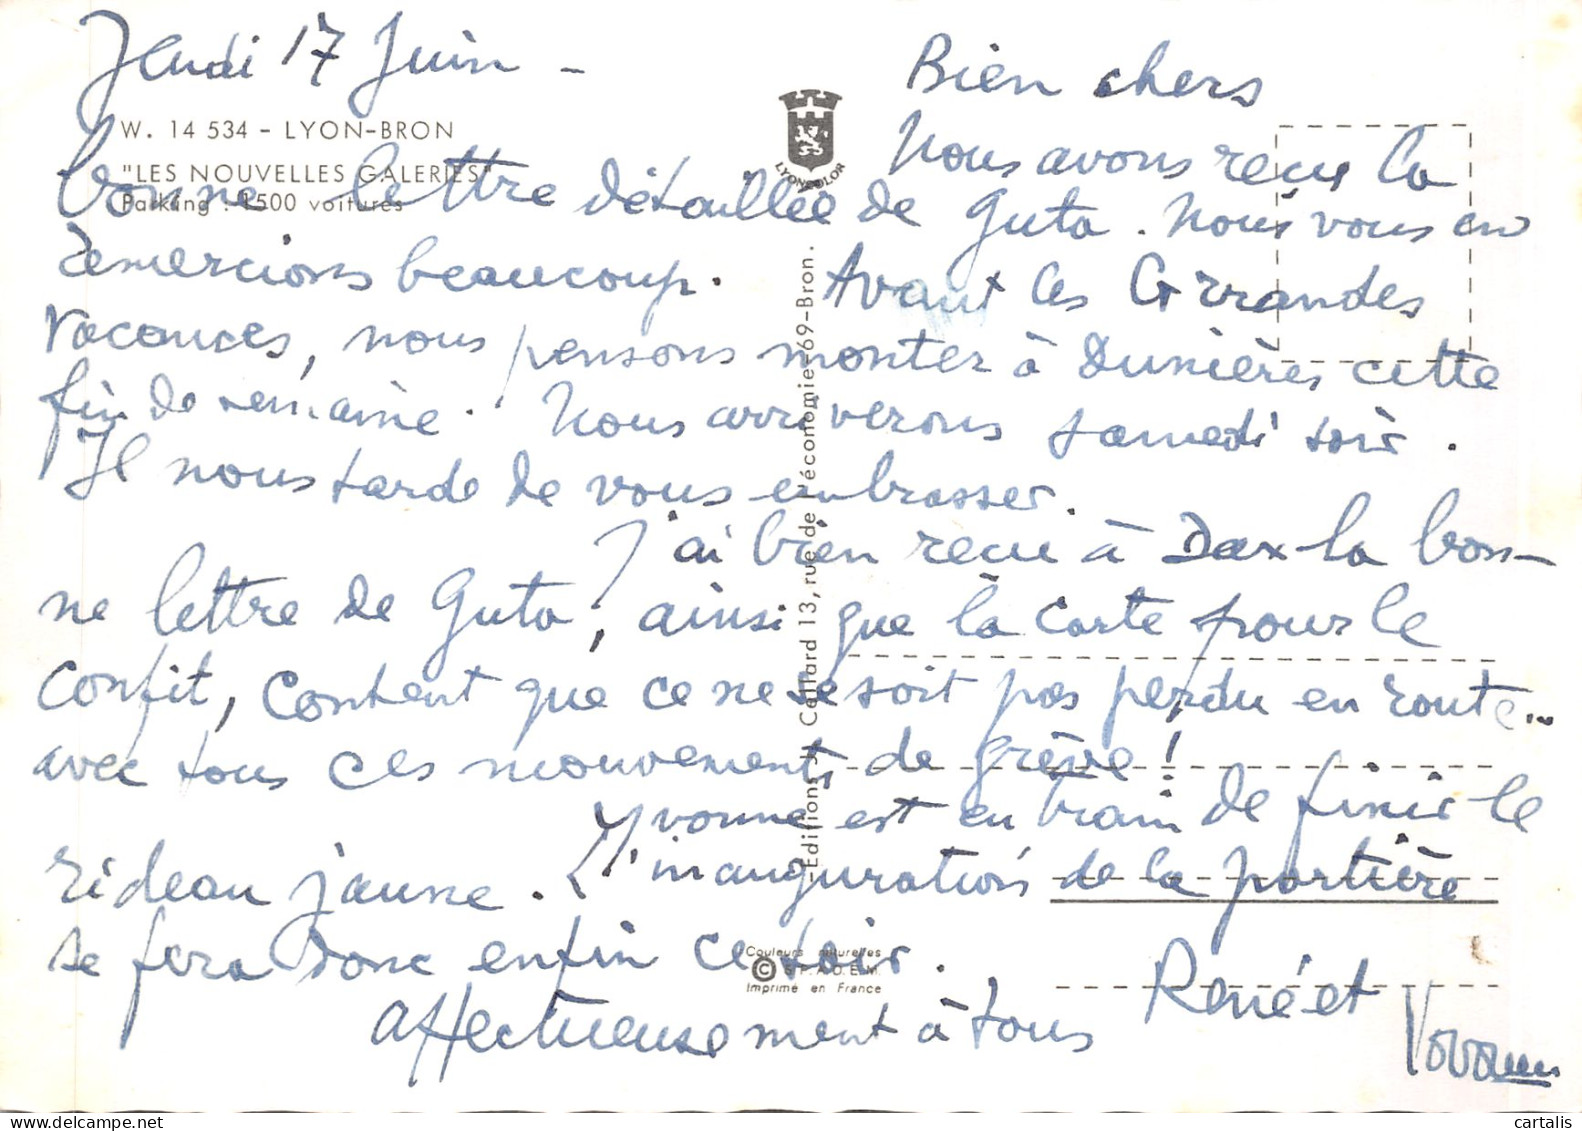 Jeudi 17 Juin -
Bien chers
W. 14 534 - LYON-BRON
"LES NOUVELLES GALERIES"
Parking : 1500 voitures
LYONCOLOR
Nous avons reçu la
bonne lettre détaillée de Guta. Nous vous en
remercions beaucoup. Avant les Grandes
Vacances, nous pensons monter à Dunières cette
fin de semaine. Nous arriverons samedi soir.
Il nous tarde de vous embrasser.
J'ai bien reçu à Dax la bon-
ne lettre de Guta, ainsi que la carte pour le
confit, content que ce ne se soit pas perdu en route...
avec tous ces mouvements de grève!
Yvonne est en train de finir le
rideau jaune. L'inauguration de la portière
se fera donc enfin ce soir.
Affectueusement à tous René et
Editions J. Cellard 13, rue de l'économie-69-Bron.
Couleurs naturelles
© S.P.A.D.E.M.
Imprimé en France
cartalis